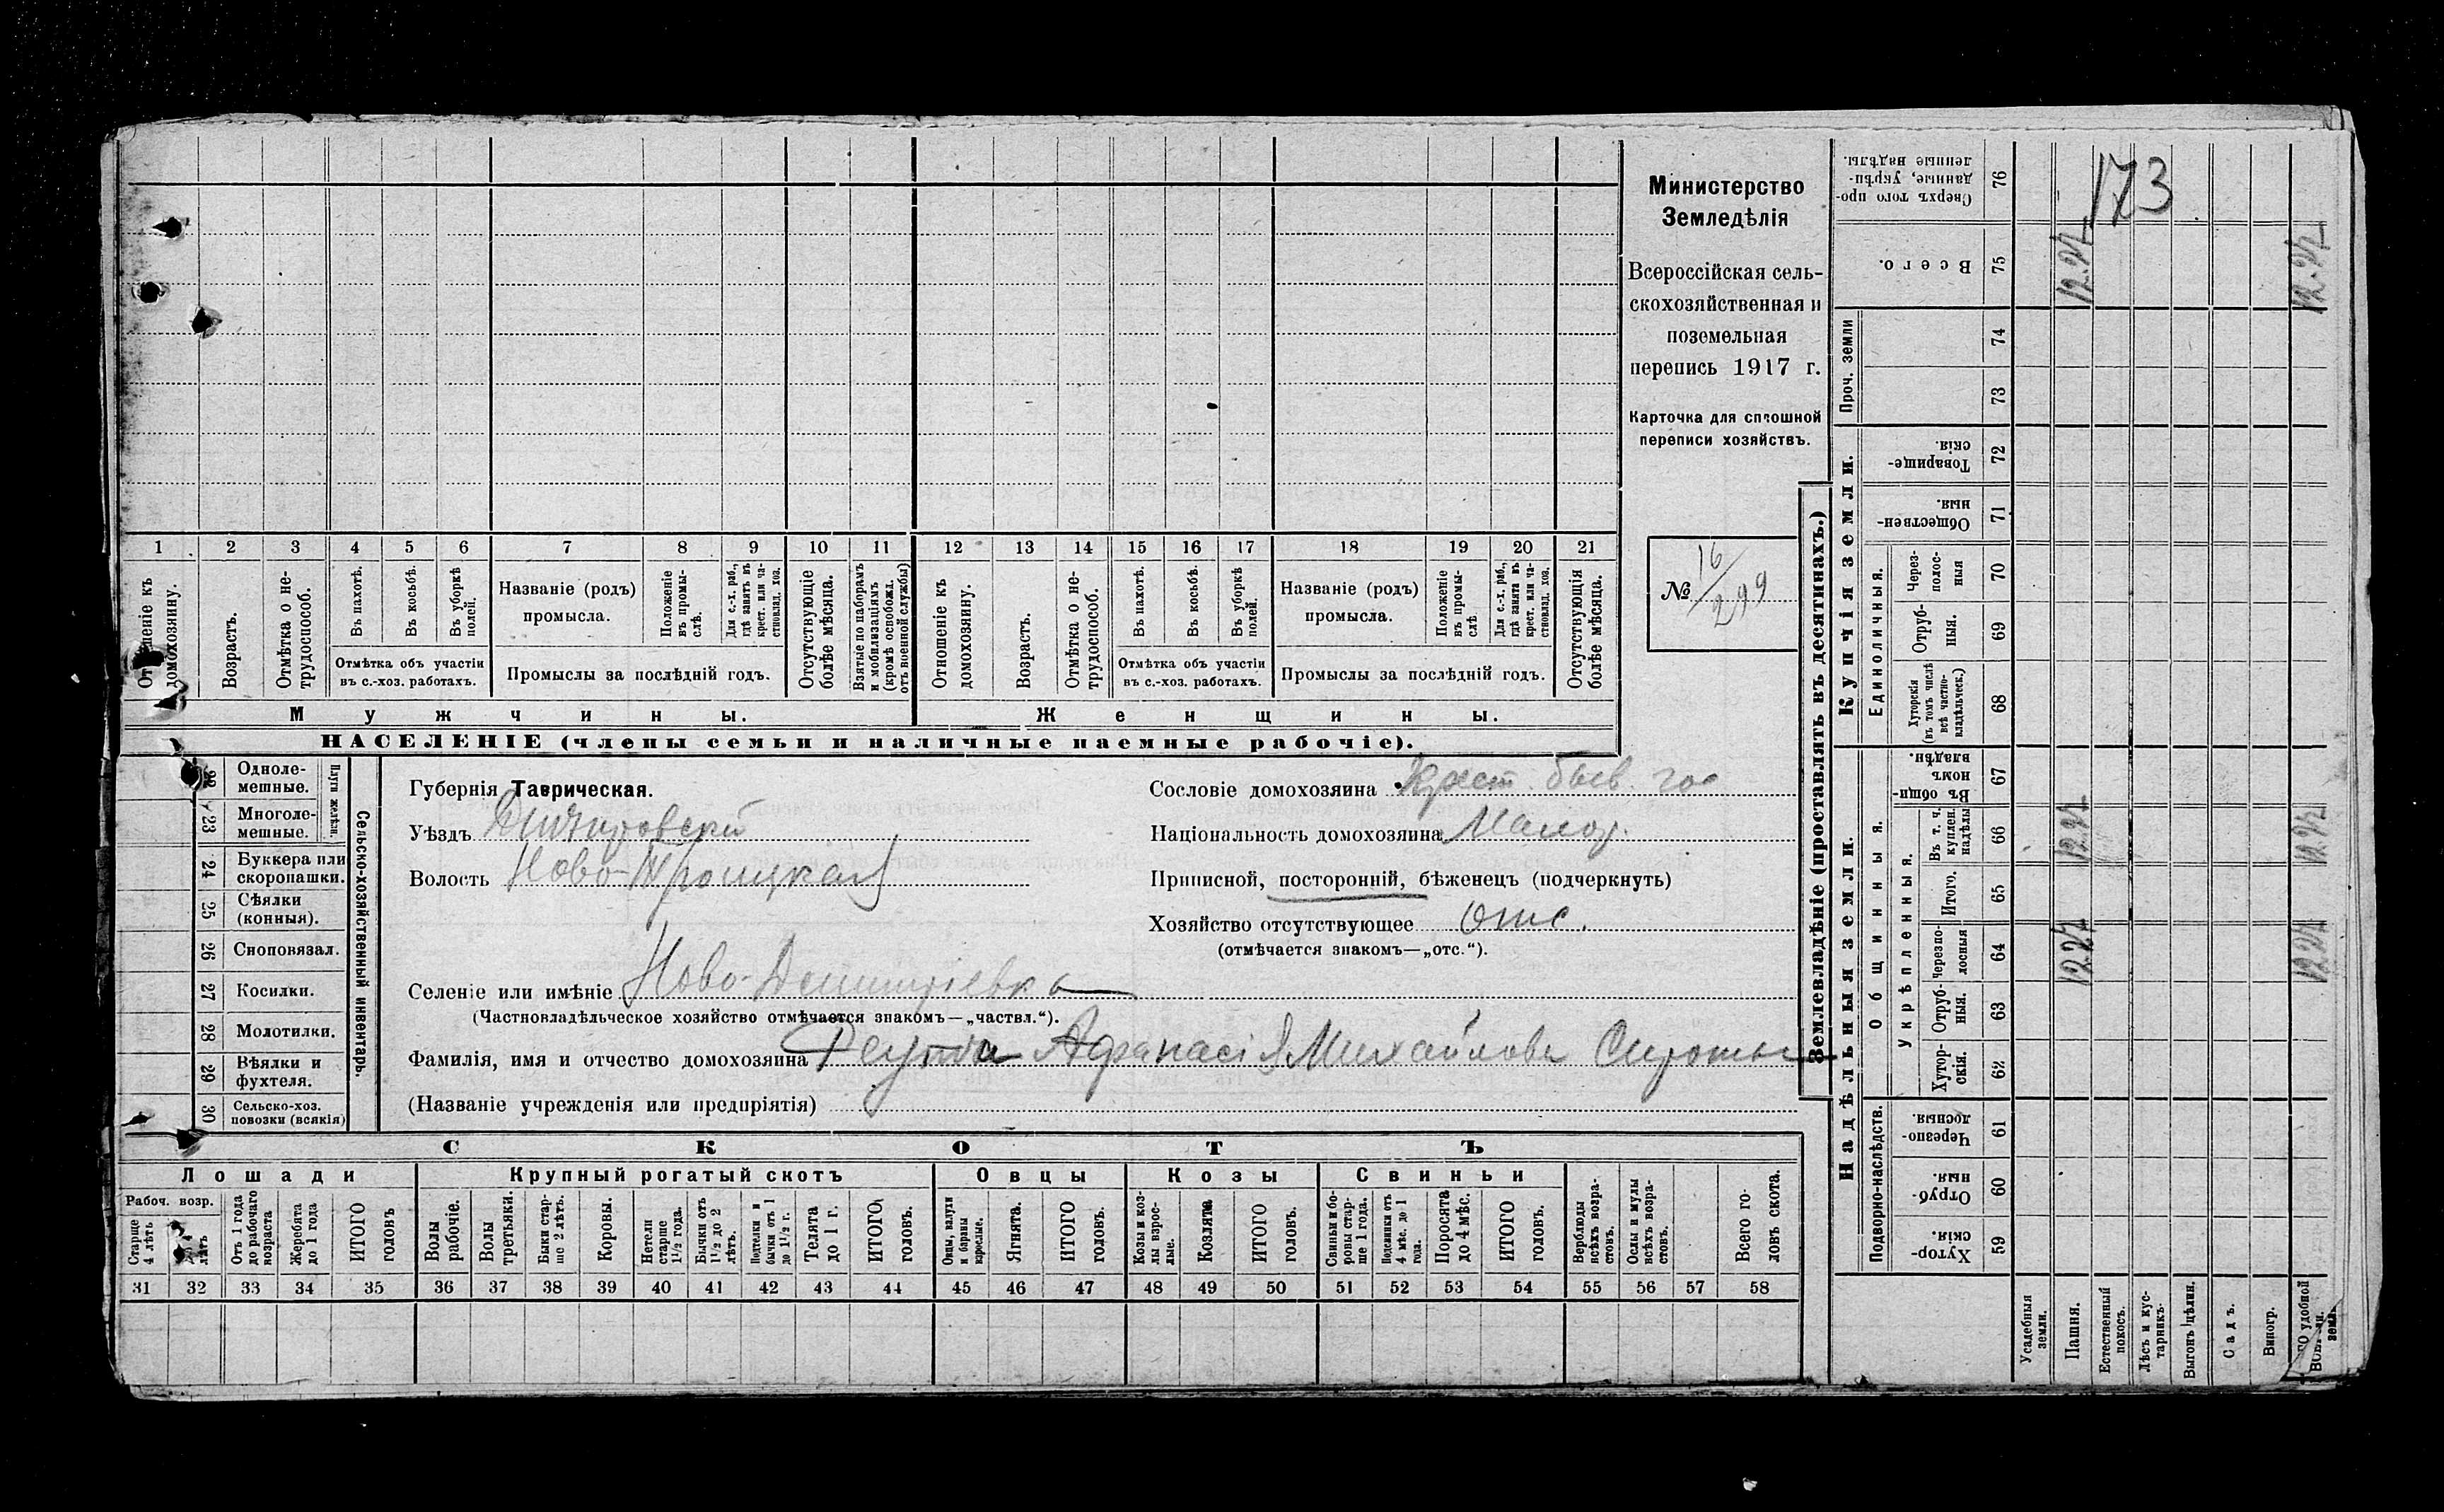 Министерство
Земледѣлія
Всероссійская сель-
скохозяйственная и
поземельная
перепись 1917 г.
Карточка для сплошной
переписи хозяйствъ.
№ 16/299
173
1 2 3 4 5 6 7 8 9 10 11 12 13 14 15 16 17 18 19 20 21
Отношеніе къ домохозяину.
Возрастъ.
Отмѣтка о не-трудоспособ.
Въ пахотѣ.
Въ косьбѣ.
Въ уборкѣ полей.
Отмѣтка объ участіи
въ с.-хоз. работахъ.
Названіе (родъ)
промысла.
Положеніе въ промы-слѣ.
Для с.-х. раб., гдѣ занятъ въ крест. или ча-стновлад. хоз.
Промыслы за послѣдній годъ.
Отсутствующіе болѣе мѣсяца.
Взятые по наборамъ и мобилизаціямъ (кромѣ освобожд. отъ военной службы)
Отношеніе къ домохозяину.
Возрастъ.
Отмѣтка о не-трудоспособ.
Въ пахотѣ.
Въ косьбѣ.
Въ уборкѣ полей.
Отмѣтка объ участіи
въ с.-хоз. работахъ.
Названіе (родъ)
промысла.
Положеніе въ промы-слѣ
Для с.-х. раб., гдѣ занята въ крест. или ча-стновлад. хоз.
Промыслы за послѣдній годъ.
Отсутствующія болѣе мѣсяца.
Мужчины.
Женщины.
НАСЕЛЕНІЕ (члены семьи и наличные наемные рабочіе).
Сельско-хозяйственный инвентарь.
Плуги желѣзн.
22 Одноле-мешные.
23 Многоле-мешные.
24 Буккера или скоропашки.
25 Сѣялки (конныя).
26 Сноповязал.
27 Косилки.
28 Молотилки.
29 Вѣялки и фухтеля.
30 Сельско-хоз. повозки (всякія)
Губернія Таврическая.
Уѣздъ Днѣпровскій
Волость Ново-Троицкая
Селеніе или имѣніе Ново-Дмитріевка
(Частновладѣльческое хозяйство отмѣчается знакомъ—„частвл.“).
Фамилія, имя и отчество домохозяина Афанасія Михайлова Сироты
(Названіе учрежденія или предпріятія)
Сословіе домохозяина Крест. быв. гос
Національность домохозяина Малор.
Приписной, посторонній, бѣженецъ (подчеркнуть)
Хозяйство отсутствующее отс.
(отмѣчается знакомъ—„отс.“).
СКОТЪ
Лошади
Крупный рогатый скотъ
Овцы
Козы
Свиньи
Рабоч. возр.
Старше 4 лѣтъ
лѣтъ
Отъ 1 года до рабочаго возраста
Жеребята до 1 года
ИТОГО головъ
Волы рабочіе.
Волы третьяки.
Быки стар-ше 2 лѣтъ.
Коровы.
Нетели старше 1½ года.
Бычки отъ 1½ до 2 лѣтъ.
Подтелки и бычки отъ 1 до 1½ г.
Телята до 1 г.
ИТОГО головъ.
Овцы, валухи и бараны взрослые.
Ягнята.
ИТОГО головъ.
Козы и коз-лы взрос-лые.
Козлята
ИТОГО головъ.
Свиньи и бо-ровы стар-ше 1 года.
Подсвинки отъ 4 мѣс. до 1 года.
Поросята до 4 мѣс.
ИТОГО головъ.
Верблюды всѣхъ возра-стовъ.
Ослы и мулы всѣхъ возра-стовъ.
Всего го-ловъ скота.
31 32 33 34 35 36 37 38 39 40 41 42 43 44 45 46 47 48 49 50 51 52 53 54 55 56 57 58
Землевладѣніе (проставлять въ десятинахъ.)
Надѣльныя земли.
Купчія земли.
Проч. земли
Подворно-наслѣдств.
Общинныя.
Укрѣпленныя.
Единоличныя.
Хутор-скія. 59
Отруб-ныя. 60
Черезпо-лосныя 61
Хутор-скія. 62
Отруб-ныя. 63
Черезпо-лосныя 64
Итого. 65
Въ т. ч. куплен. надѣлы 66
Въ общи-номъ владѣн. 67
Хуторскія (въ томъ числѣ всѣ частно-владѣльческ.) 68
Отруб-ныя. 69
Через-полос-ныя 70
Обществен-ныя. 71
Товарище-скія. 72
73
74
Всего. 75
Сверхъ того про-данные, укрѣп-ленные надѣлы. 76
Усадебныя земли.
Пашня.
Естественный покосъ.
Лѣсъ и кус-тарникъ.
Выгонъ цѣлин.
Садъ.
Виногр.
удобной земли